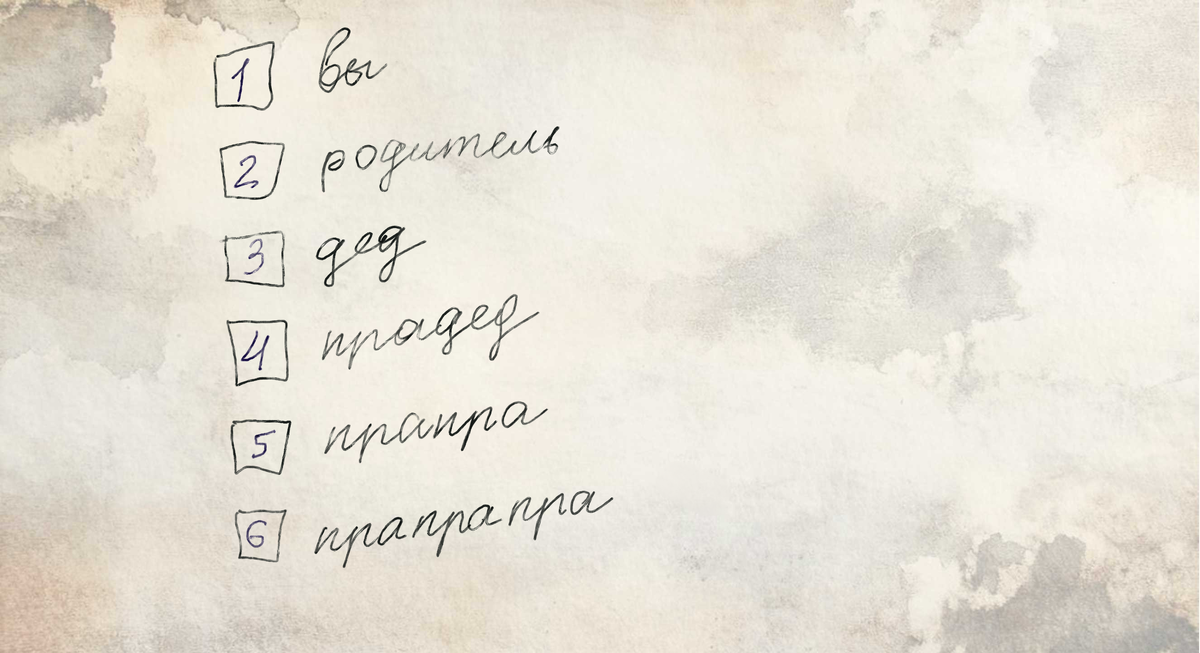 1 вы
2 родитель
3 дед
4 прадед
5 прапра
6 прапрапра